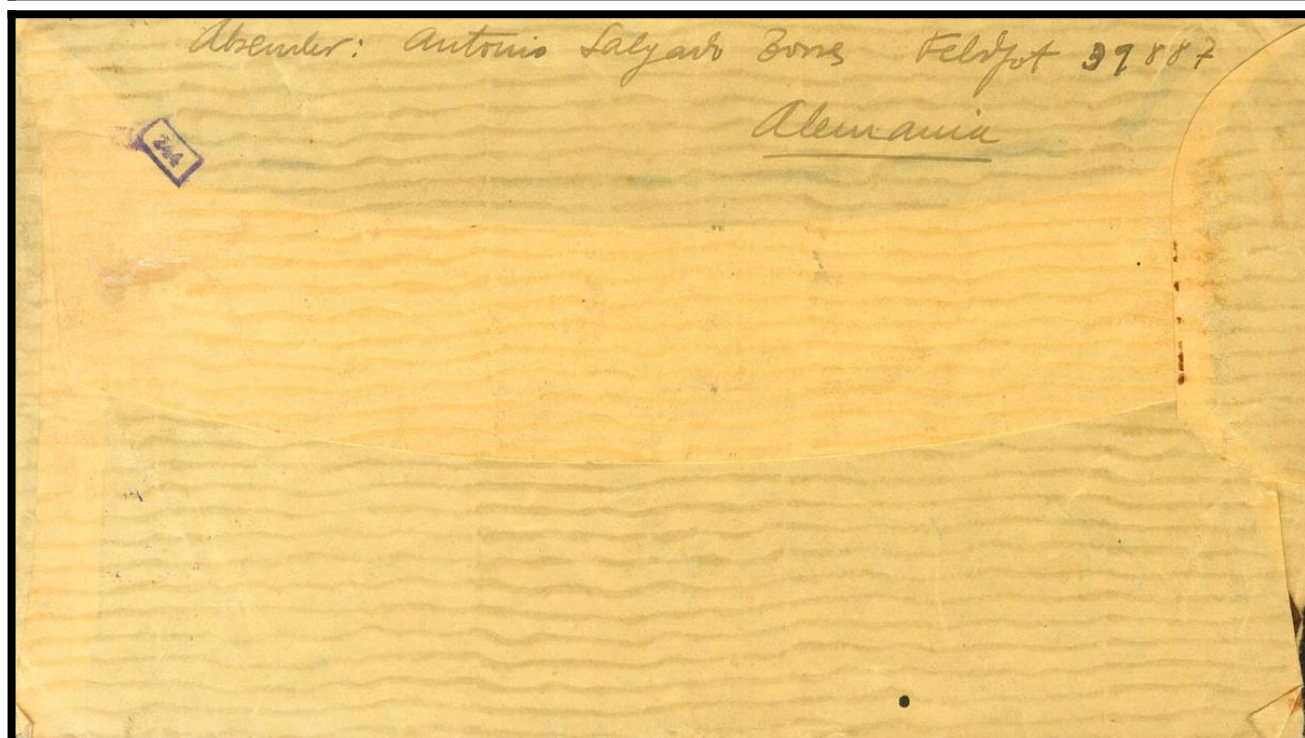 Absender: Antonio Salgado Borres Feldpost 39887
Alemania
244